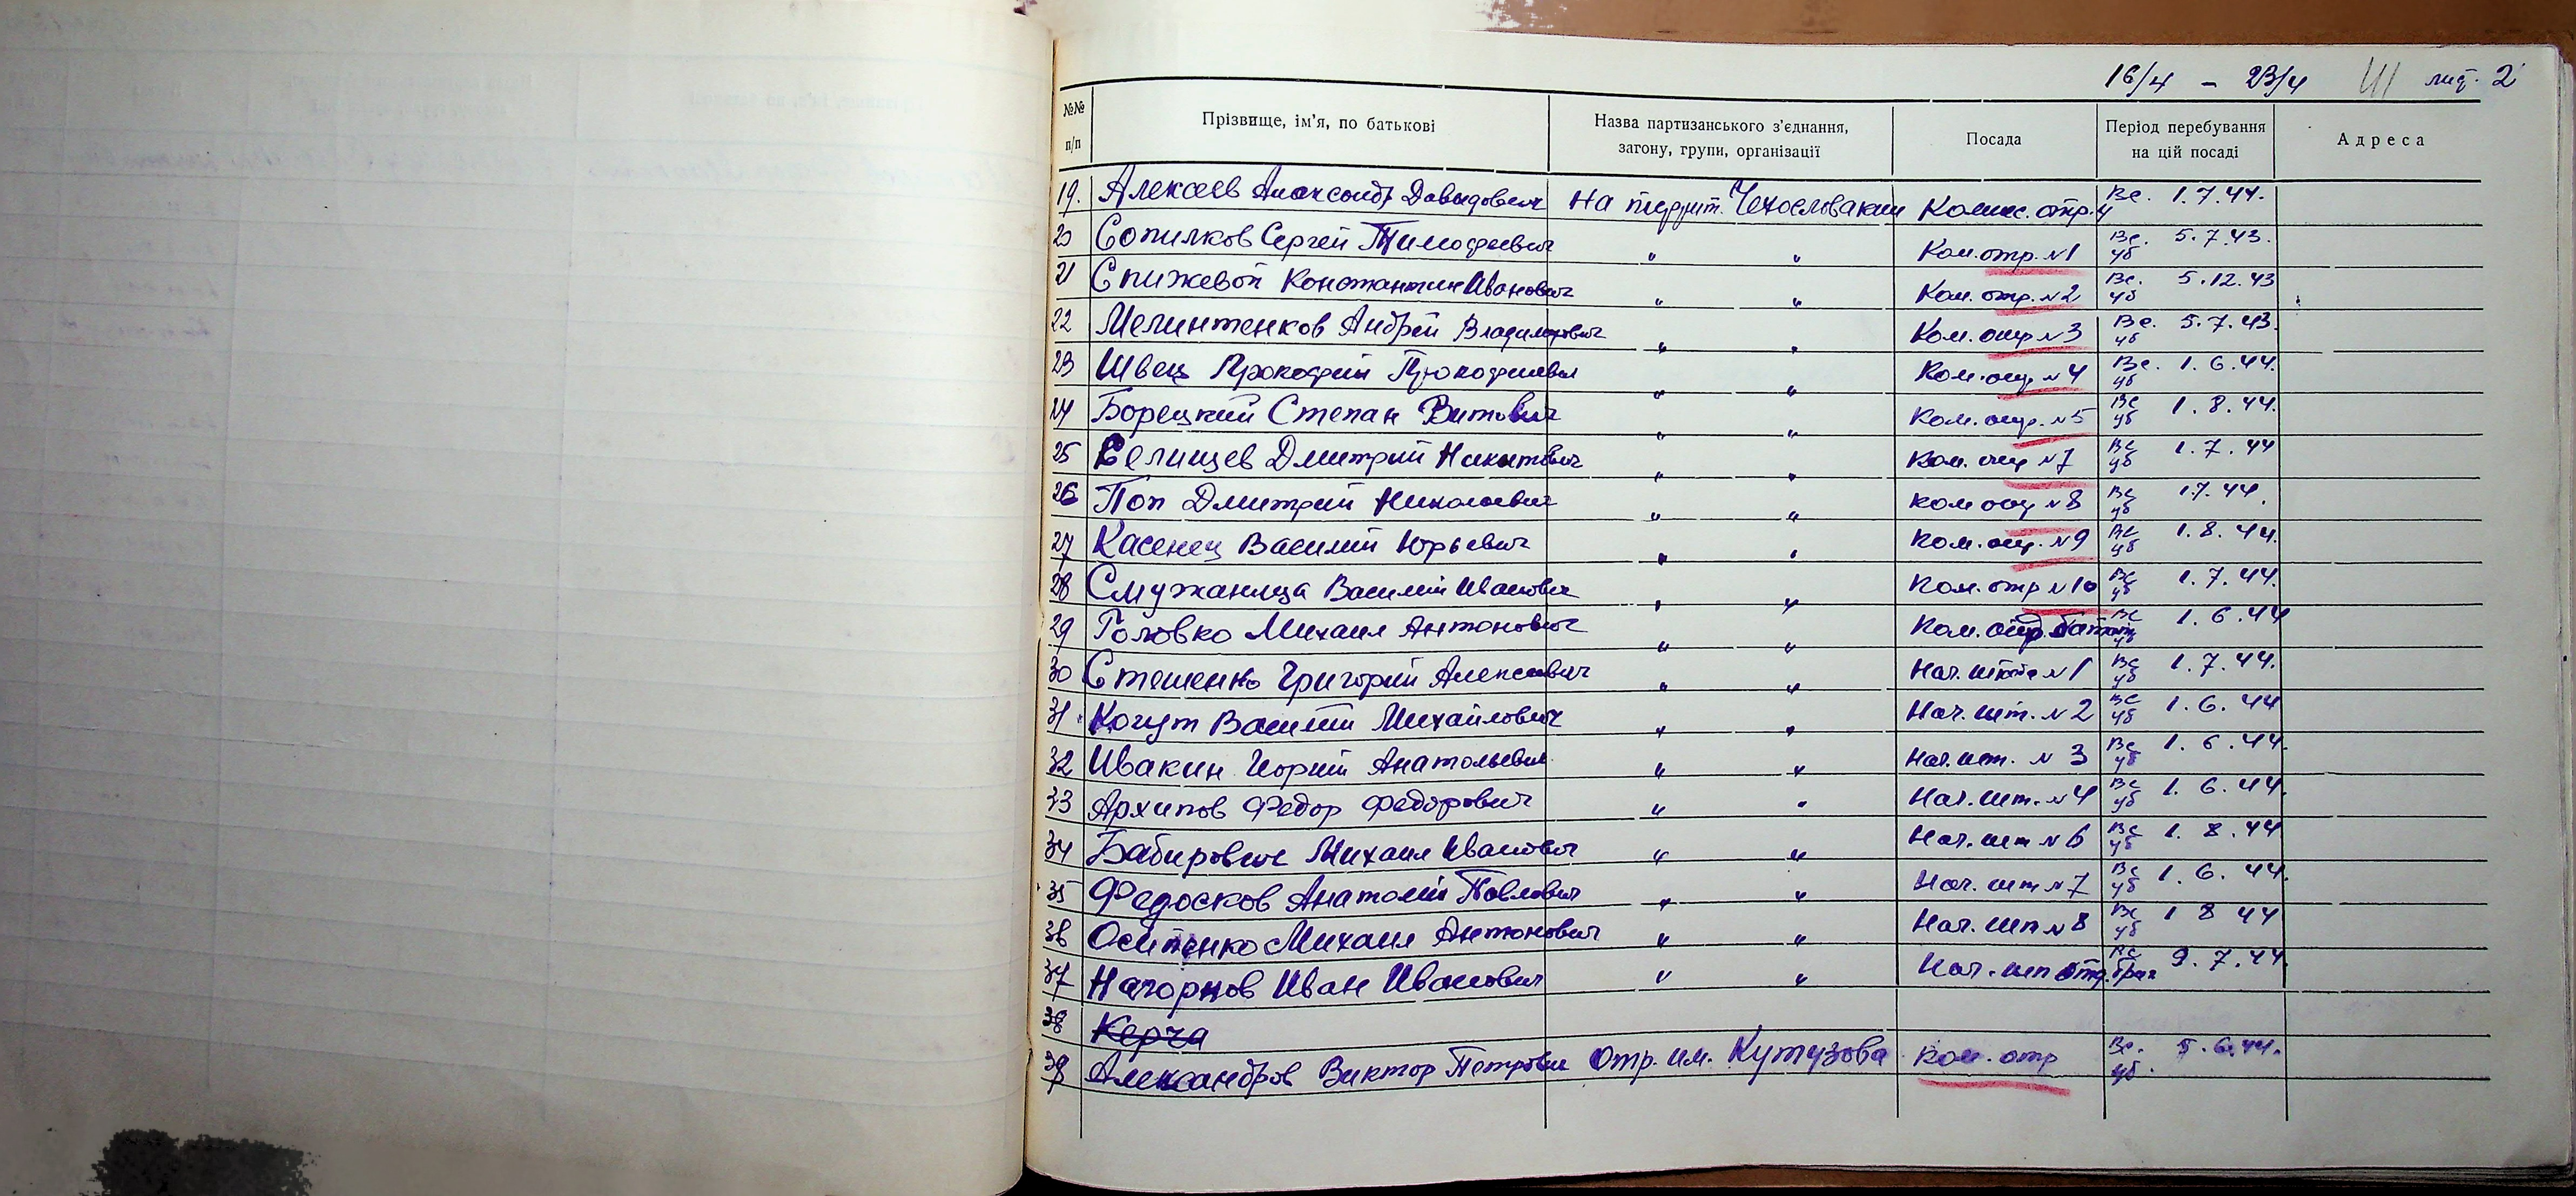 16/4 - 23/4 III лист. 2
№№ п/п Прізвище, ім'я, по батькові Назва партизанського з'єднання, загону, групи, організації Посада Період перебування на цій посаді Адреса
19. Алексеев Александр Давыдович На террит. Чехословакии Комис. отр. 4 Вс. 1.7.44.
20 Сопилков Сергей Тимофеевич " " Ком. отр. №1 Вс. уб 5.7.43.
21 Спижевой Константин Иванович " " Ком. отр. №2 Вс. уб 5.12.43
22 Мелинтенков Андрей Владимирович " " Ком. отр №3 Вс. уб 5.7.43.
23 Швец Прокофий Прокофиевич " " Ком. отр №4 Вс. уб 1.6.44.
24 Борецкий Степан Витович " " Ком. отр. №5 Вс уб 1.8.44.
25 Селищев Дмитрий Никитович " " Ком. отр №7 Вс уб 1.7.44
26 Поп Дмитрий Николаевич " " Ком отр №8 Вс уб 1.7.44.
27 Касенец Василий Юрьевич " " Ком. отр. №9 Вс уб 1.8.44.
28 Смужаница Василий Иванович " " Ком. отр №10 Вс уб 1.7.44.
29 Головко Михаил Антонович " " Ком. Вс уб 1.6.44
30 Стешенко Григорий Алексеевич " " Нач. штаба №1 Вс уб 1.7.44.
31 Когут Василий Михайлович " " Нач. шт. №2 Вс уб 1.6.44
32 Ивакин Юрий Анатольевич " " Нач. шт. №3 Вс уб 1.6.44.
33 Архипов Федор Федорович " " Нач. шт. №4 Вс уб 1.6.44.
34 Бабирович Михаил Иванович " " Нач. шт №6 Вс уб 1.8.44
35 Федосков Анатолий Павлович " " Нач. шт №7 Вс уб 1.6.44.
36 Осипенко Михаил Антонович " " Нач. шт №8 Вс уб 1 8 44
37 Нагорнов Иван Иванович " " Нач. шт Вс 9.7.44.
38 Керча
39 Александров Виктор Петрович Отр. им. Кутузова Ком. отр Вс. уб. 5.6.44.